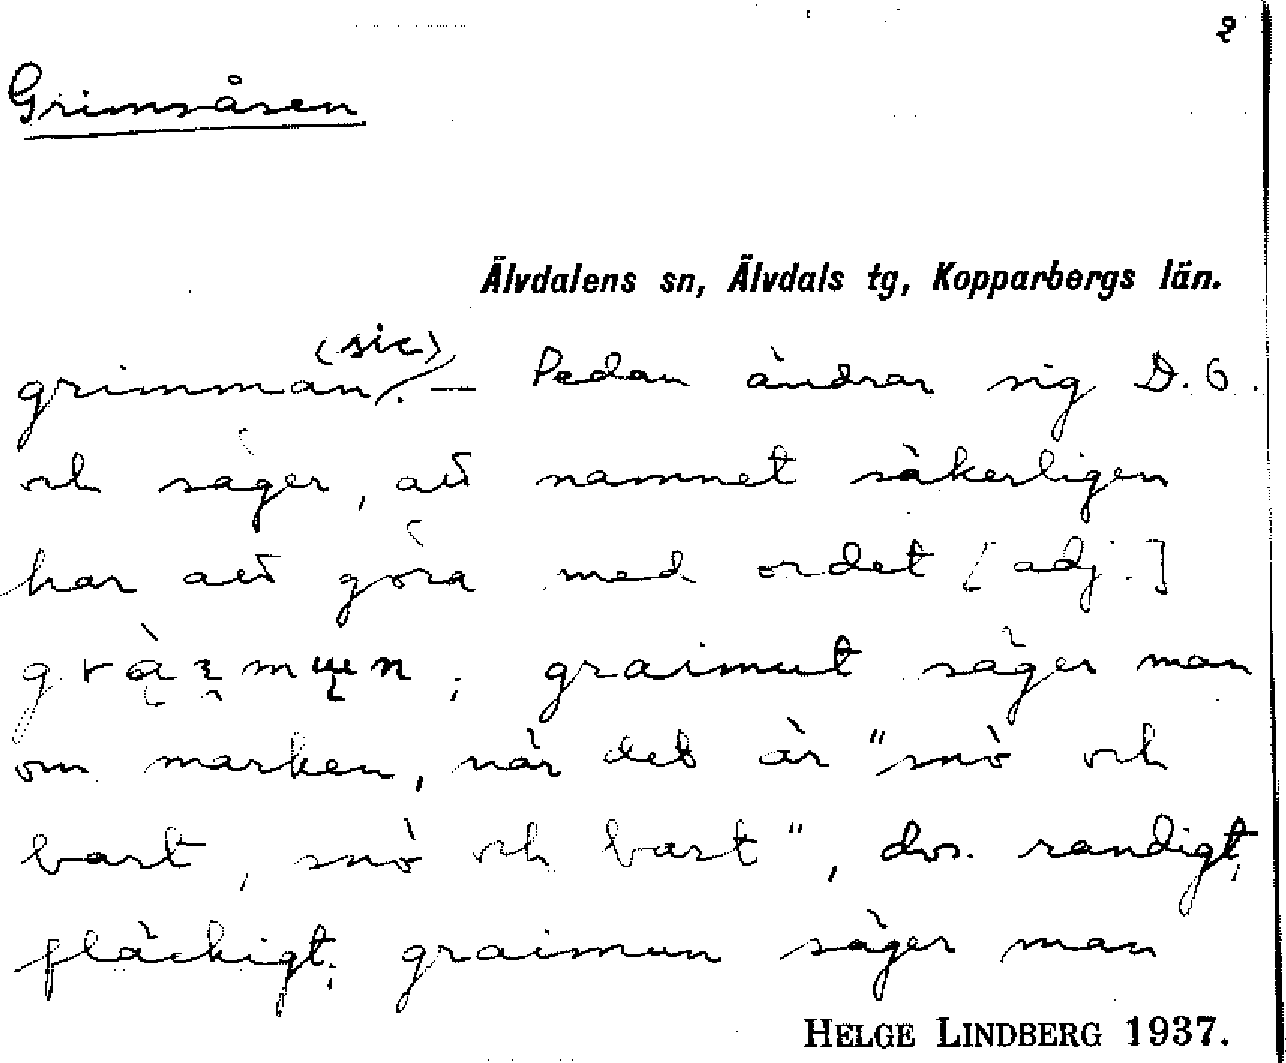 2
Grimsåsen
Älvdalens sn, Älvdals tg, Kopparbergs län.
(sic)
grimman. — Sedan ändrar sig D. G.
och säger, att namnet säkerligen
har att göra med ordet [adj.]
graimut säger man
om marken, när det är "snö och
bart, snö och bart", dvs. randigt,
fläckigt; graimun säger man
HELGE LINDBERG 1937.